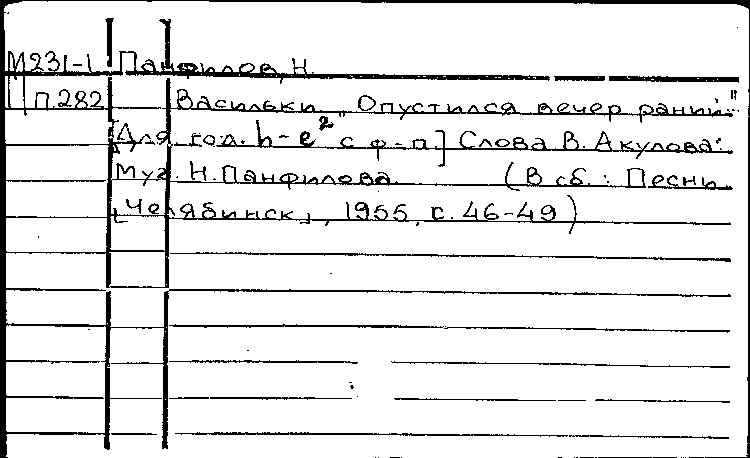 М231-1 Панфилов, Н.
П.282 Васильки „Опустился вечер раний..."
[Для гол. h-e² с ф-п] Слова В. Акулова.
Муз. Н. Панфилова. (В сб.: Песни.
[Челябинск], 1955, с. 46-49)